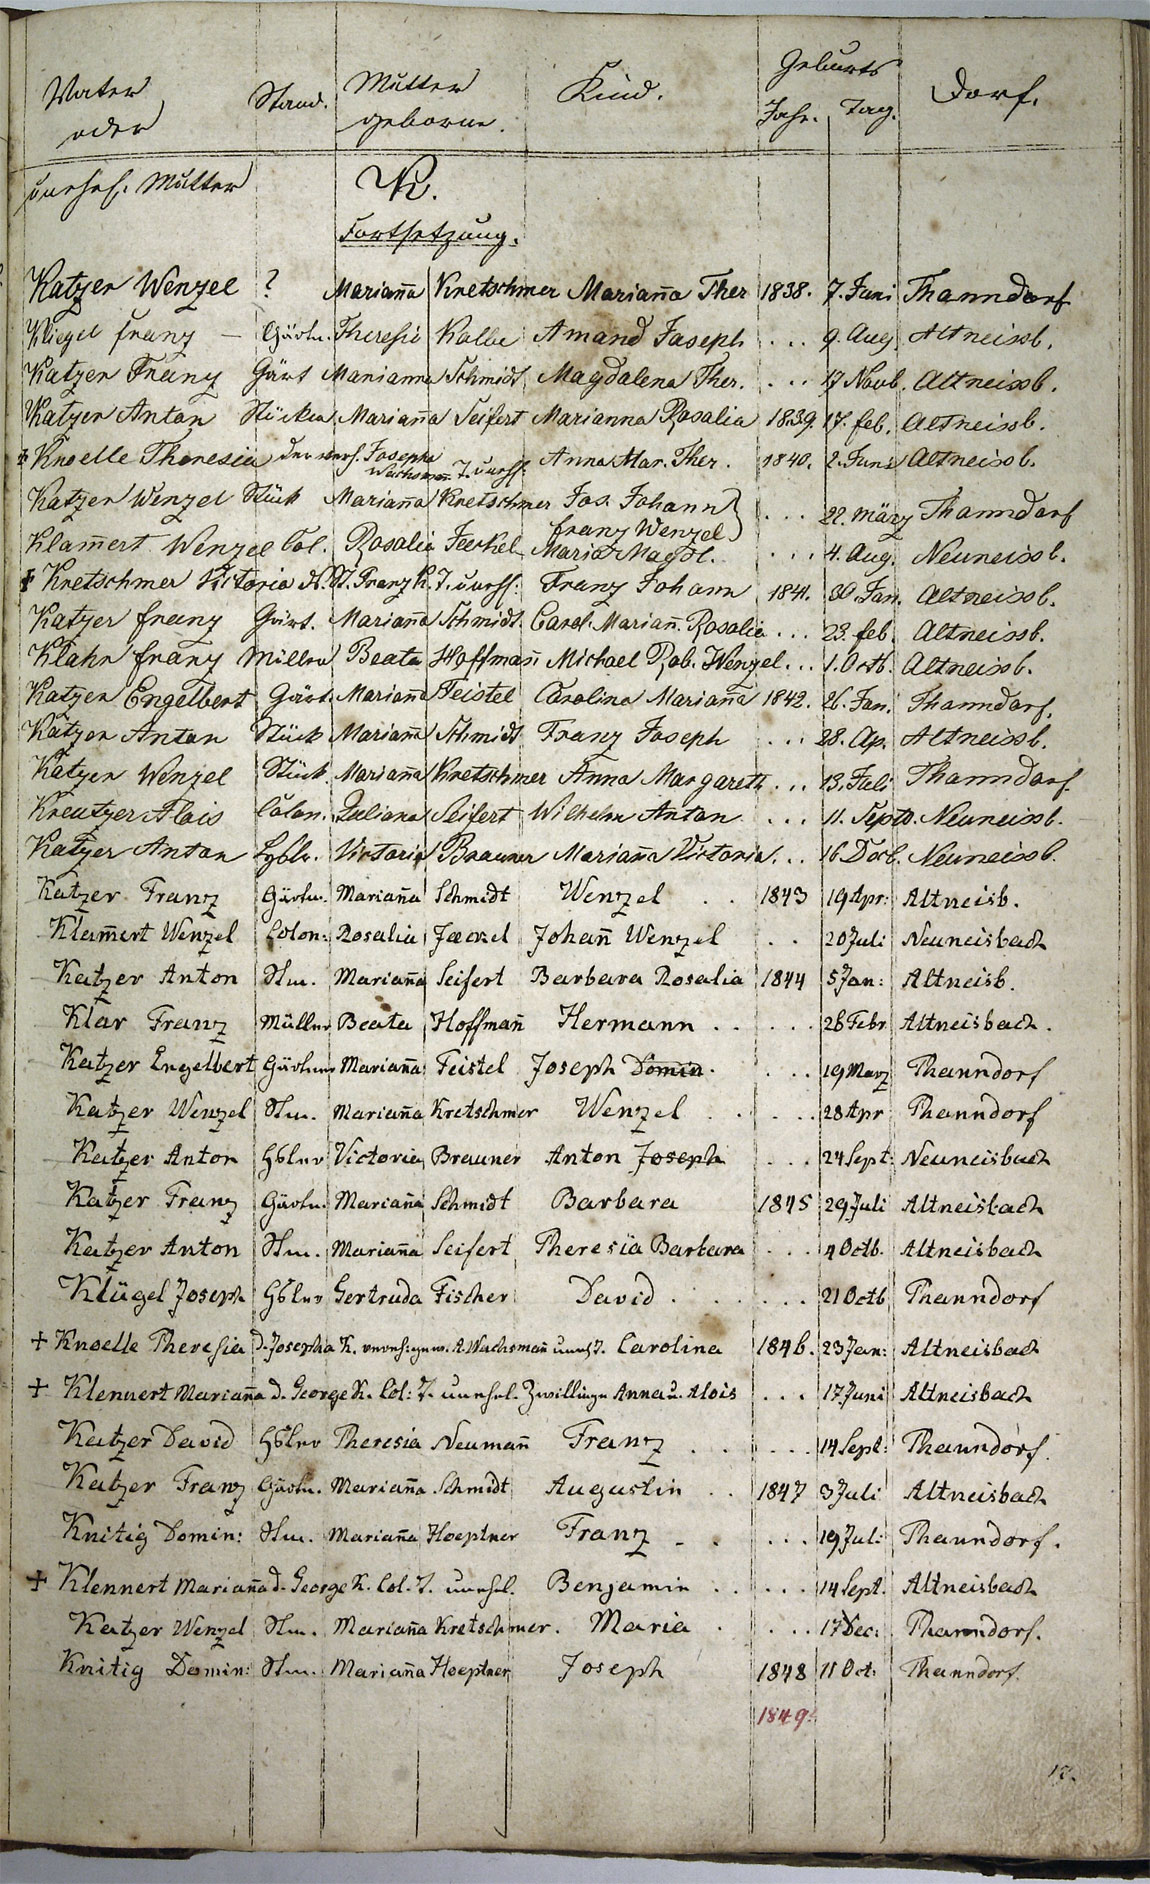 Vater oder unehel. Mutter Stand. Mutter geborne. Kind. Geburts Jahr. Tag. Dorf.
K.
Fortsetzung.
Katzer Wenzel ? Mariaña Kretschmer Mariaña Ther 1838. 7. Juni Thanndorf
Kliegel Franz — Gärtn. Theresia Kolbe Amand Joseph ... 9. Aug Altneissb.
Katzer Franz Gärt Marianna Schmidt Magdalena Ther. ... 17 Novb. Altneissb.
Katzer Anton Stücker Mariaña Seifert Marianna Rosalia 1839. 17. feb. Altneissb.
+ Knoelle Theresia der verh. Josepha Wachsmañ T. unehl. Anna Mar. Ther. 1840. 2. Juni Altneissb.
Katzer Wenzel Stück Mariaña Kretschmer Jos. Johann
Franz Wenzel } ... 22. März Thanndorf
Klam̄ert Wenzel Col. Rosalia Jeckel Maria Magdl. ... 4. Aug. Neuneissb.
+ Kretschmer Victoria d. St. Franz K. T. unehl: Franz Johann 1841. 30. Jan. Altneissb.
Katzer Franz Gärt. Mariaña Schmidt. Carol. Mariañ. Rosalia ... 23. feb. Altneissb.
Klahr Franz Müller Beata Hoffmañ Michael Rob. Wenzel ... 1. Octb. Altneissb.
Katzer Engelbert Gärt. Mariaña Feistel Carolina Mariaña 1842. 26. Jan. Thanndorf.
Katzer Anton Stück Mariaña Schmidt Franz Joseph ... 28. Ap. Altneissb.
Katzer Wenzel Stück Mariaña Kretschmer Anna Margareth ... 13. Juli Thanndorf.
Kreutzer Alois Colon. Juliana Seifert Wilhelm Anton ... 11. Septb. Neuneissb.
Katzer Anton Victoria Brauner Mariaña Victoria ... 16 Decb. Neuneissb.
Katzer Franz Gärtn. Mariaña Schmidt Wenzel .. 1843 19 Apr: Altneisb.
Klam̄ert Wenzel Colon: Rosalia Jaeckel Johañ Wenzel .. 20 Juli Neuneisbach
Katzer Anton Stm. Mariaña Seifert Barbara Rosalia 1844 5 Jan: Altneisb.
Klar Franz Müller Beata Hoffmañ Hermann ..... 26 Febr Altneisbach.
Katzer Engelbert Gärtner Mariaña Feistel Joseph Domin. ... 19 Marz Thanndorf
Katzer Wenzel Stm. Mariaña Kretschmer Wenzel ..... 28 Apr Thanndorf
Katzer Anton Hsler Victoria Brauner Anton Joseph ... 24 Sept: Neuneisbach
Katzer Franz Gärtn. Mariaña Schmidt Barbara 1845 29 Juli Altneisbach
Katzer Anton Stm. Mariaña Seifert Theresïa Barbara ... 4 Octb. Altneisbach
Klügel Joseph Hsler Gertruda Fischer David ..... 21 Octb Thanndorf
+ Knoelle Theresia d. Josepha K. verehl: gew. A. Wachsmañ unehl T. Carolina 1846. 23 Jan: Altneisbach
+ Klennert Mariaña d. George K. Col: T. unehel. Zwillinge Anna u. Alois ... 17 Juni Altneisbach
Katzer David Hsler Theresia Neumañ Franz ..... 14 Sept: Thanndorf.
Katzer Franz Gärtn. Mariaña Schmidt Augustin .. 1847 3 Juli Altneisbach
Knitig Domin: Stm. Mariaña Hoeptner Franz ..... 19 Jul: Thanndorf.
+ Klennert Mariaña d. George K. Col. T. unehel. Benjamin ..... 14 Sept. Altneisbach
Katzer Wenzel Stm. Mariaña Kretschmer. Maria ..... 17 Dec: Thanndorf.
Knitig Domin: Stm. Mariaña Hoeptner Joseph 1848 11 Oct: Thanndorf.
1849.
17.